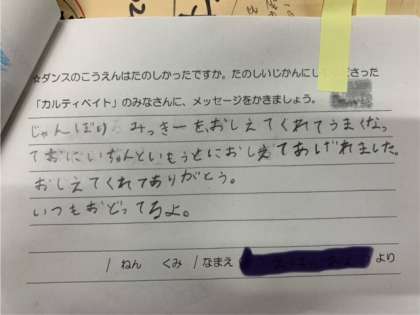 ☆ダンスのこうえんはたのしかったですか。たのしいじかんにし さった
「カルティベイト」のみなさんに、メッセージをかきましょう。
じゃんぼりみっきーを、おしえてくれてうまくなっ
ておにいちゃんといもうとにおしえてあげれました。
おしえてくれてありがとう。
いつもおどってるよ。
/ ねん くみ / なまえ より